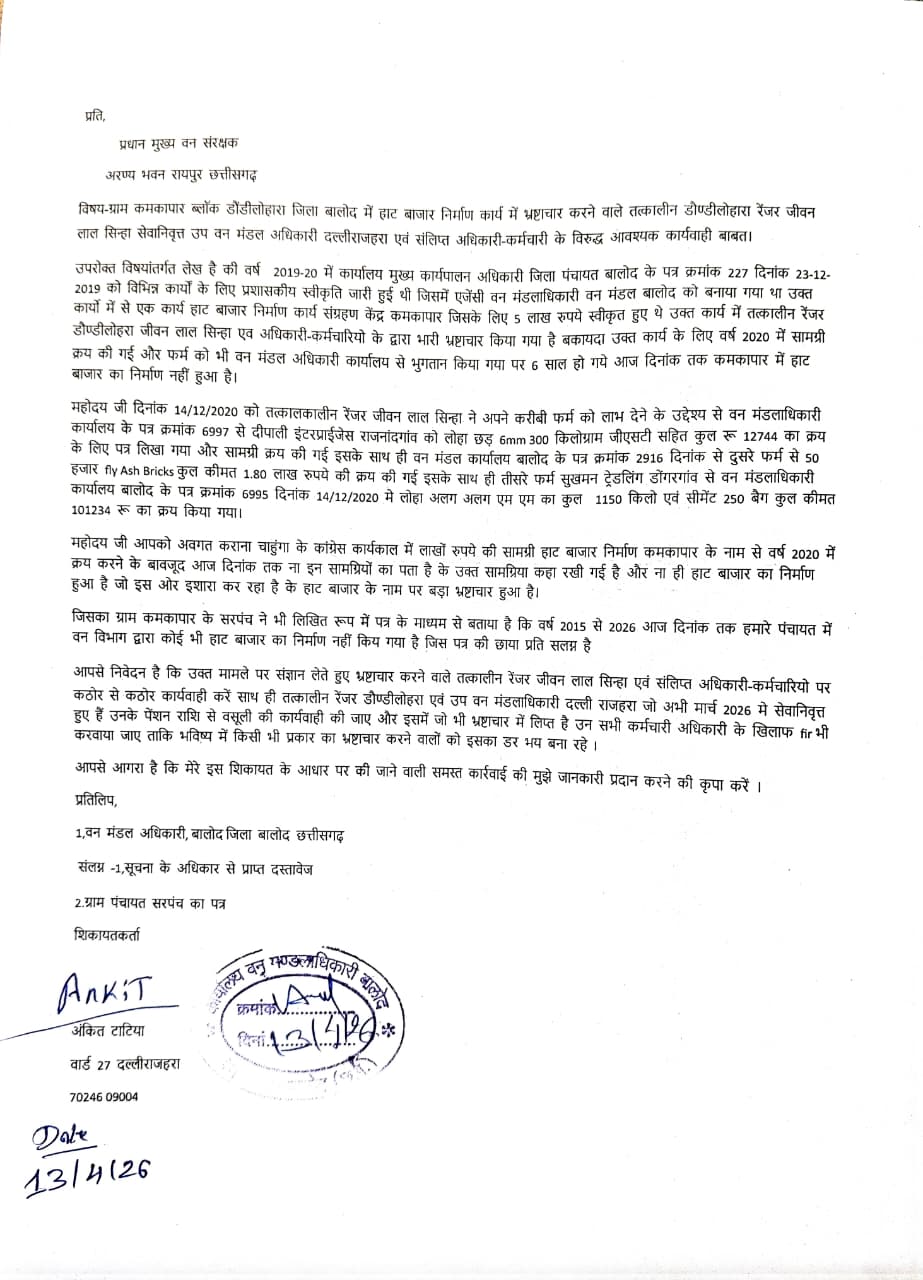 प्रति,
प्रधान मुख्य वन संरक्षक
अरण्य भवन रायपुर छत्तीसगढ़
विषय-ग्राम कमकापार ब्लॉक डौंडीलोहारा जिला बालोद में हाट बाजार निर्माण कार्य में भ्रष्टाचार करने वाले तत्कालीन डौण्डीलोहारा रेंजर जीवन
लाल सिन्हा सेवानिवृत्त उप वन मंडल अधिकारी दल्लीराजहरा एवं संलिप्त अधिकारी-कर्मचारी के विरुद्ध आवश्यक कार्यवाही बाबत।
उपरोक्त विषयांतर्गत लेख है की वर्ष 2019-20 में कार्यालय मुख्य कार्यपालन अधिकारी जिला पंचायत बालोद के पत्र क्रमांक 227 दिनांक 23-12-
2019 को विभिन्न कार्यों के लिए प्रशासकीय स्वीकृति जारी हुई थी जिसमें एजेंसी वन मंडलाधिकारी वन मंडल बालोद को बनाया गया था उक्त
कार्यो में से एक कार्य हाट बाजार निर्माण कार्य संग्रहण केंद्र कमकापार जिसके लिए 5 लाख रुपये स्वीकृत हुए थे उक्त कार्य में तत्कालीन रेंजर
डौण्डीलोहरा जीवन लाल सिन्हा एव अधिकारी-कर्मचारियो के द्वारा भारी भ्रष्टाचार किया गया है बकायदा उक्त कार्य के लिए वर्ष 2020 में सामग्री
क्रय की गई और फर्म को भी वन मंडल अधिकारी कार्यालय से भुगतान किया गया पर 6 साल हो गये आज दिनांक तक कमकापार में हाट
बाजार का निर्माण नहीं हुआ है।
महोदय जी दिनांक 14/12/2020 को तत्कालकालीन रेंजर जीवन लाल सिन्हा ने अपने करीबी फर्म को लाभ देने के उद्देश्य से वन मंडलाधिकारी
कार्यालय के पत्र क्रमांक 6997 से दीपाली इंटरप्राईजेस राजनांदगांव को लोहा छड़ 6mm 300 किलोग्राम जीएसटी सहित कुल रू 12744 का क्रय
के लिए पत्र लिखा गया और सामग्री क्रय की गई इसके साथ ही वन मंडल कार्यालय बालोद के पत्र क्रमांक 2916 दिनांक से दुसरे फर्म से 50
हजार fly Ash Bricks कुल कीमत 1.80 लाख रुपये की क्रय की गई इसके साथ ही तीसरे फर्म सुखमन ट्रेडलिंग डोंगरगांव से वन मंडलाधिकारी
कार्यालय बालोद के पत्र क्रमांक 6995 दिनांक 14/12/2020 मे लोहा अलग अलग एम एम का कुल 1150 किलो एवं सीमेंट 250 बैग कुल कीमत
101234 रू का क्रय किया गया।
महोदय जी आपको अवगत कराना चाहुंगा के कांग्रेस कार्यकाल में लाखों रुपये की सामग्री हाट बाजार निर्माण कमकापार के नाम से वर्ष 2020 में
क्रय करने के बावजूद आज दिनांक तक ना इन सामग्रियों का पता है के उक्त सामग्रिया कहा रखी गई है और ना ही हाट बाजार का निर्माण
हुआ है जो इस ओर इशारा कर रहा है के हाट बाजार के नाम पर बड़ा भ्रष्टाचार हुआ है।
जिसका ग्राम कमकापार के सरपंच ने भी लिखित रूप में पत्र के माध्यम से बताया है कि वर्ष 2015 से 2026 आज दिनांक तक हमारे पंचायत में
वन विभाग द्वारा कोई भी हाट बाजार का निर्माण नहीं किय गया है जिस पत्र की छाया प्रति सलग्न है
आपसे निवेदन है कि उक्त मामले पर संज्ञान लेते हुए भ्रष्टाचार करने वाले तत्कालीन रेंजर जीवन लाल सिन्हा एवं संलिप्त अधिकारी-कर्मचारियो पर
कठोर से कठोर कार्यवाही करें साथ ही तत्कालीन रेंजर डौण्डीलोहरा एवं उप वन मंडलाधिकारी दल्ली राजहरा जो अभी मार्च 2026 मे सेवानिवृत्त
हुए हैं उनके पेंशन राशि से वसूली की कार्यवाही की जाए और इसमें जो भी भ्रष्टाचार में लिप्त है उन सभी कर्मचारी अधिकारी के खिलाफ fir भी
करवाया जाए ताकि भविष्य में किसी भी प्रकार का भ्रष्टाचार करने वालों को इसका डर भय बना रहे ।
आपसे आगरा है कि मेरे इस शिकायत के आधार पर की जाने वाली समस्त कार्रवाई की मुझे जानकारी प्रदान करने की कृपा करें ।
प्रतिलिप,
1,वन मंडल अधिकारी, बालोद जिला बालोद छत्तीसगढ़
संलग्न -1,सूचना के अधिकार से प्राप्त दस्तावेज
2.ग्राम पंचायत सरपंच का पत्र
शिकायतकर्ता
ANKIT
कार्यालय वन मण्डलाधिकारी बालोद
क्रमांक
दिनां. 13/4/26
अंकित टाटिया
वार्ड 27 दल्लीराजहरा
70246 09004
Date
13/4/26